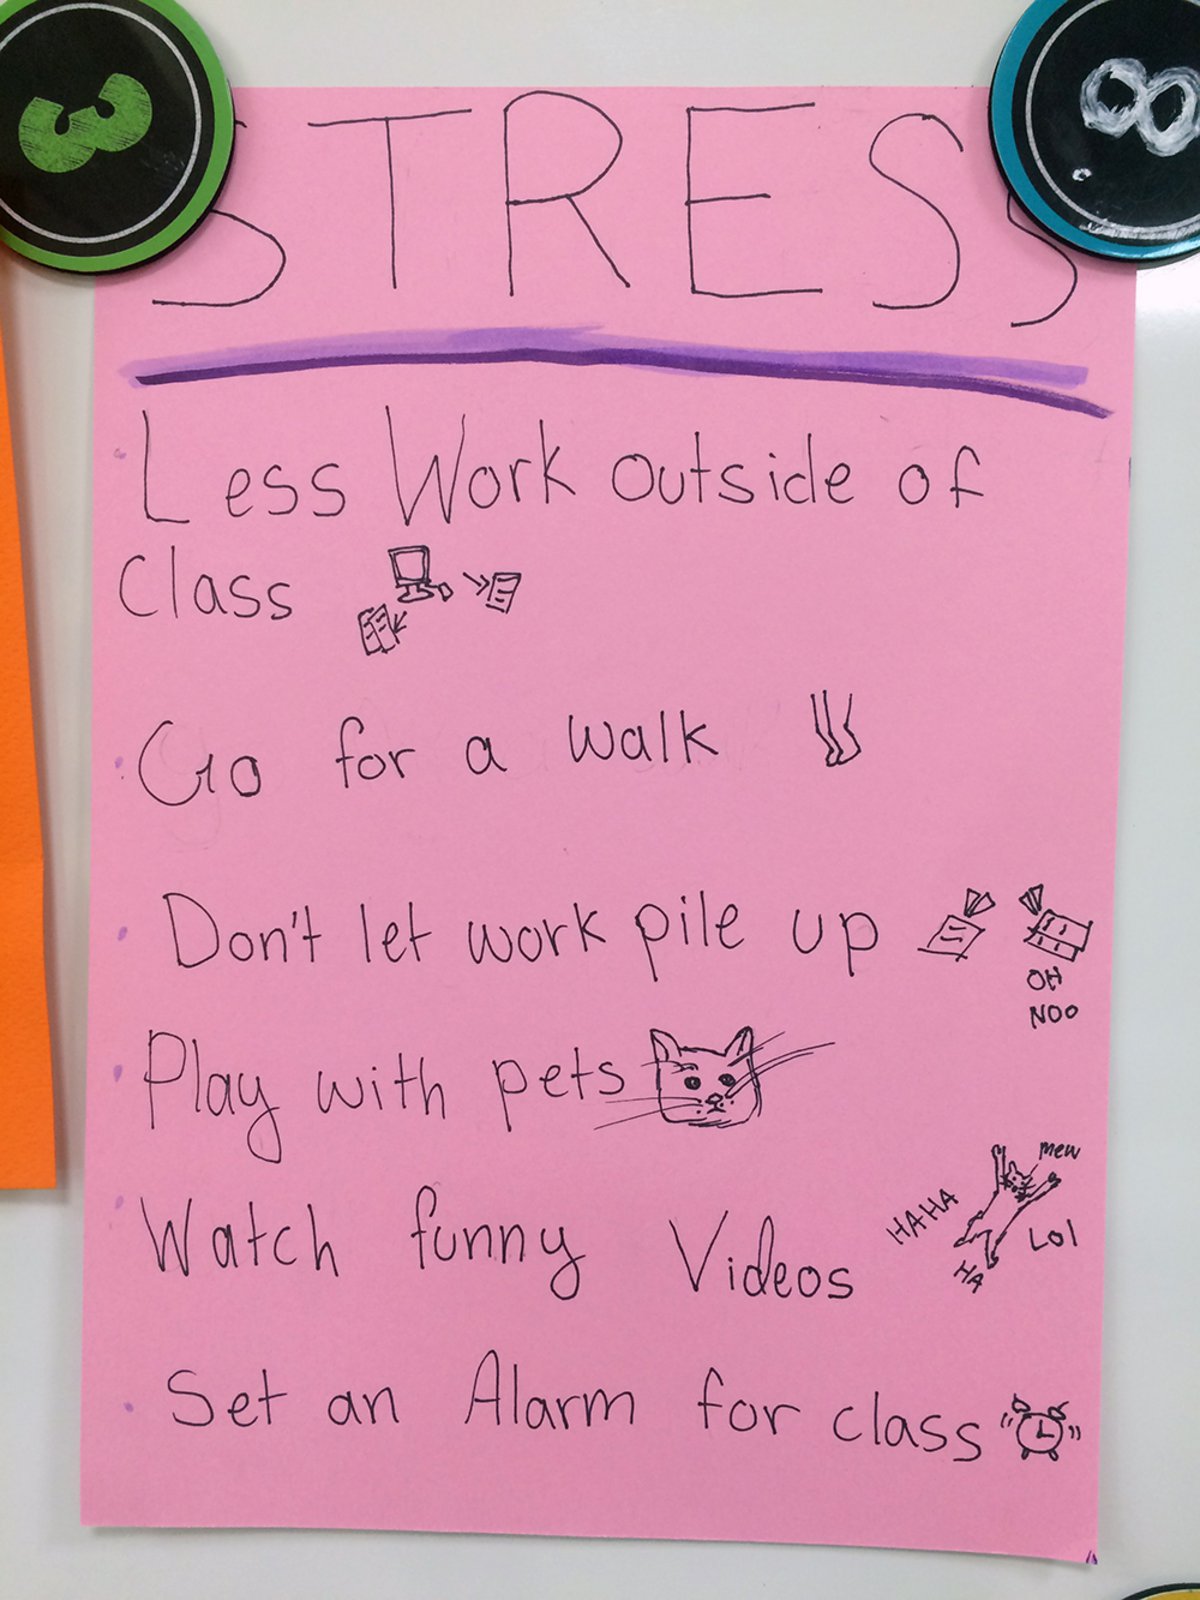 3
8
STRESS
Less Work outside of
class
Go for a walk
Don't let work pile up
OH
NOO
Play with pets
mew
HAHA
Watch funny Videos
LOl
HA
Set an Alarm for class